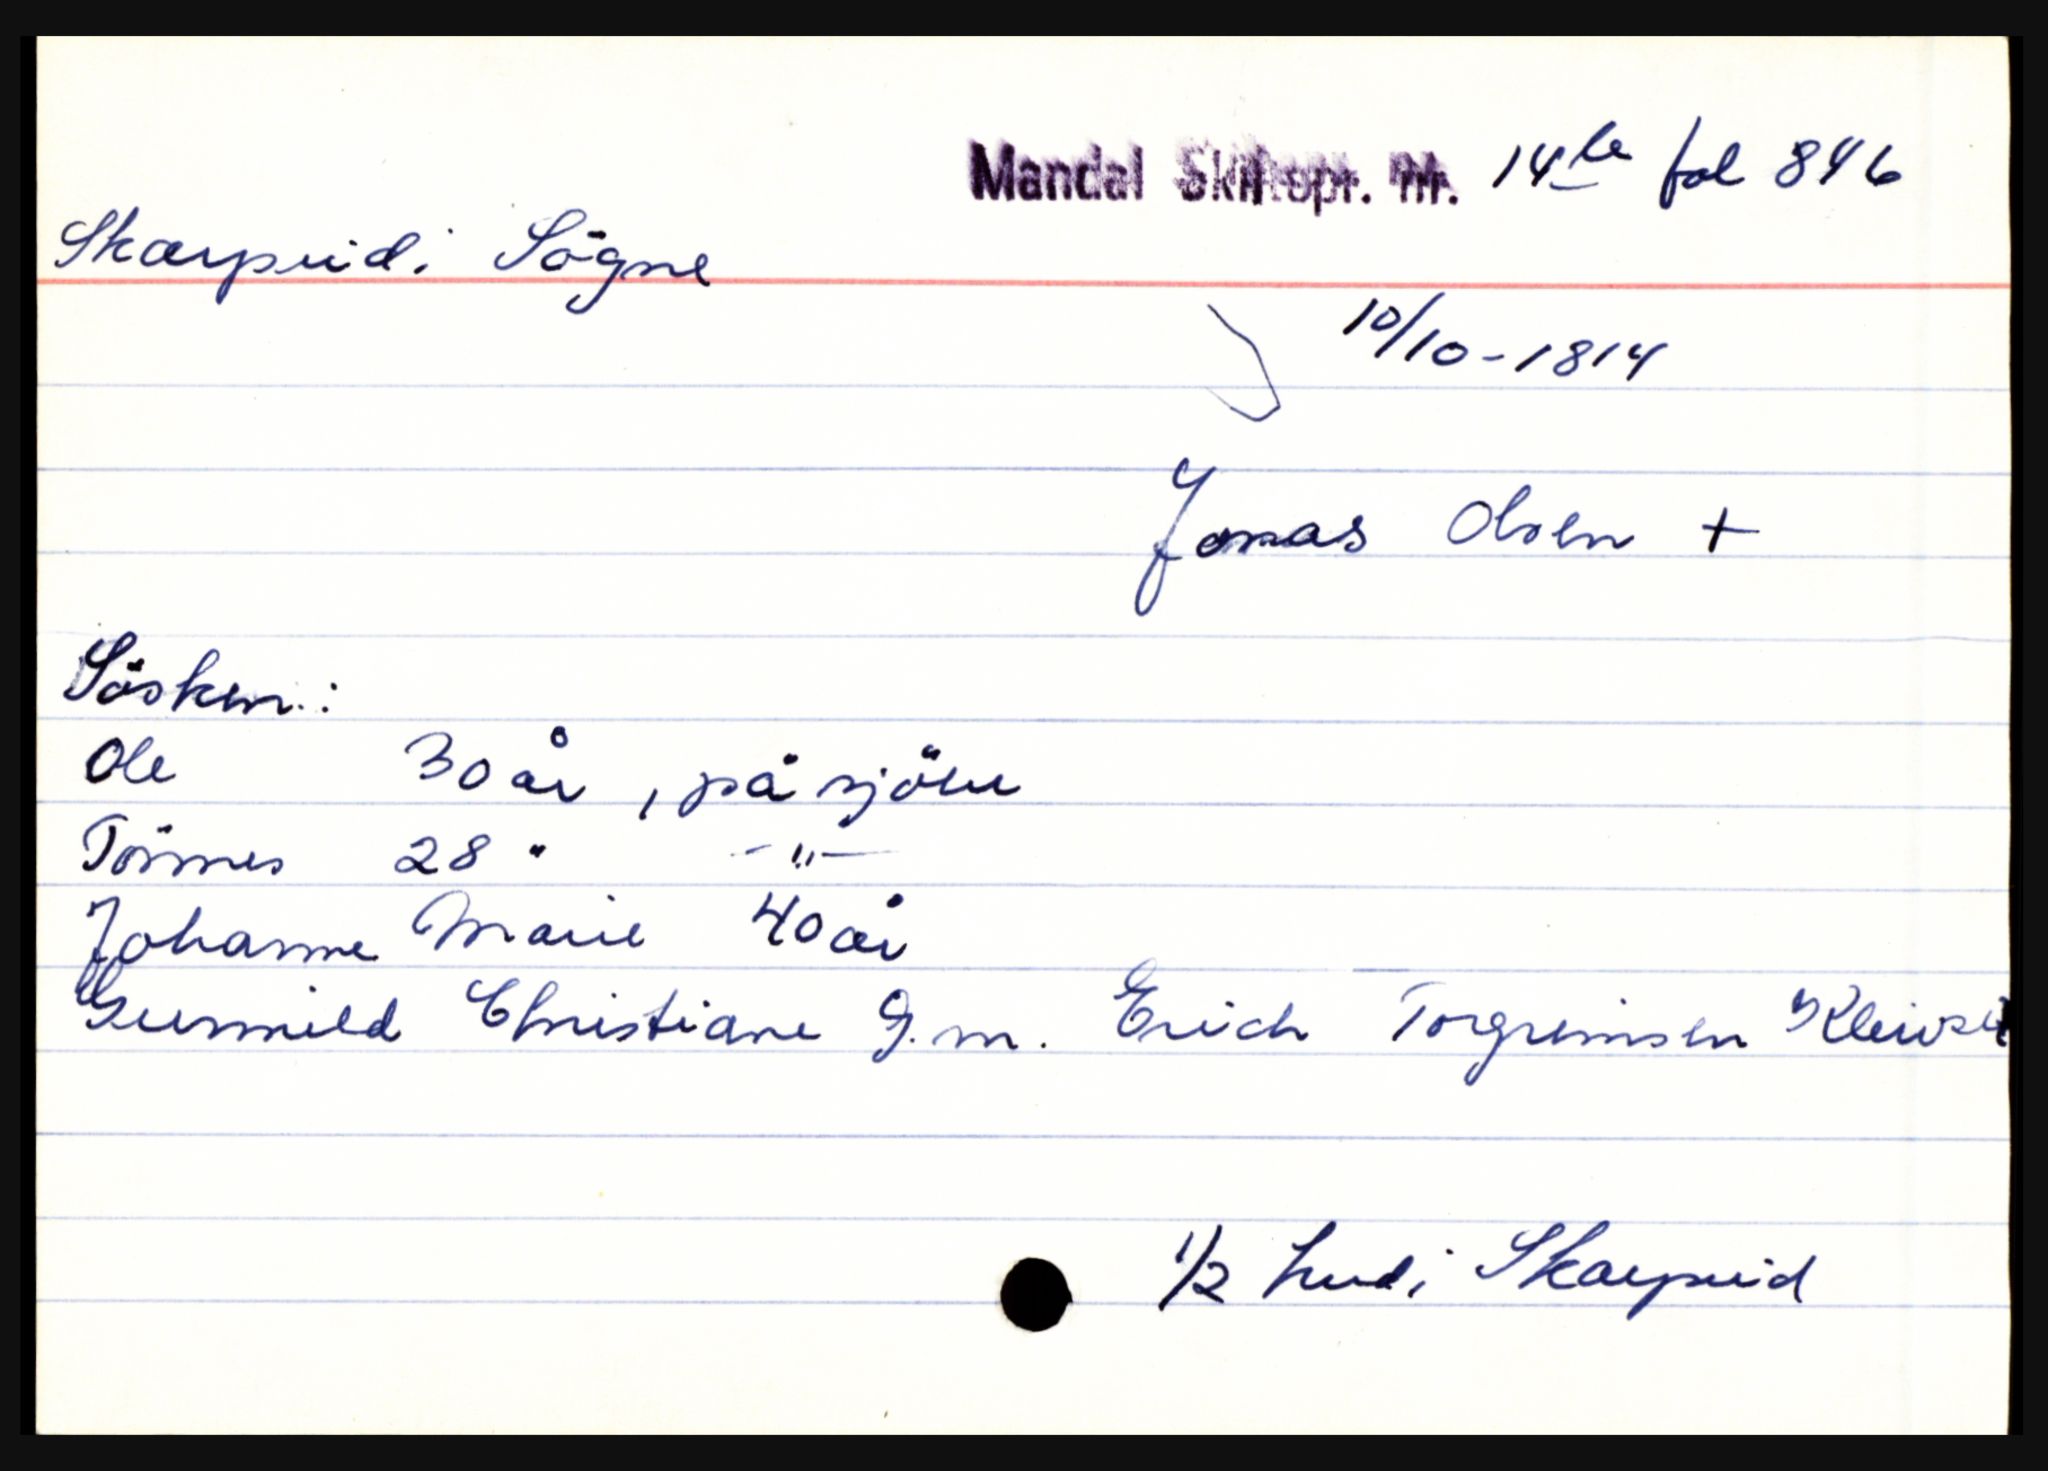 Mandal Skiftepr. nr. 14 b fol 846
Skarpeid i Sögne
10/10-1814
Jonas Olsen +
Sösken:
Ole 30 år, på sjöen
Tönnes 28 " -"-
Johanne Marie 40 år
Gunnild Christiane g.m. Erich Torgrimsen Kleivset
1/2 hud i Skarpeid